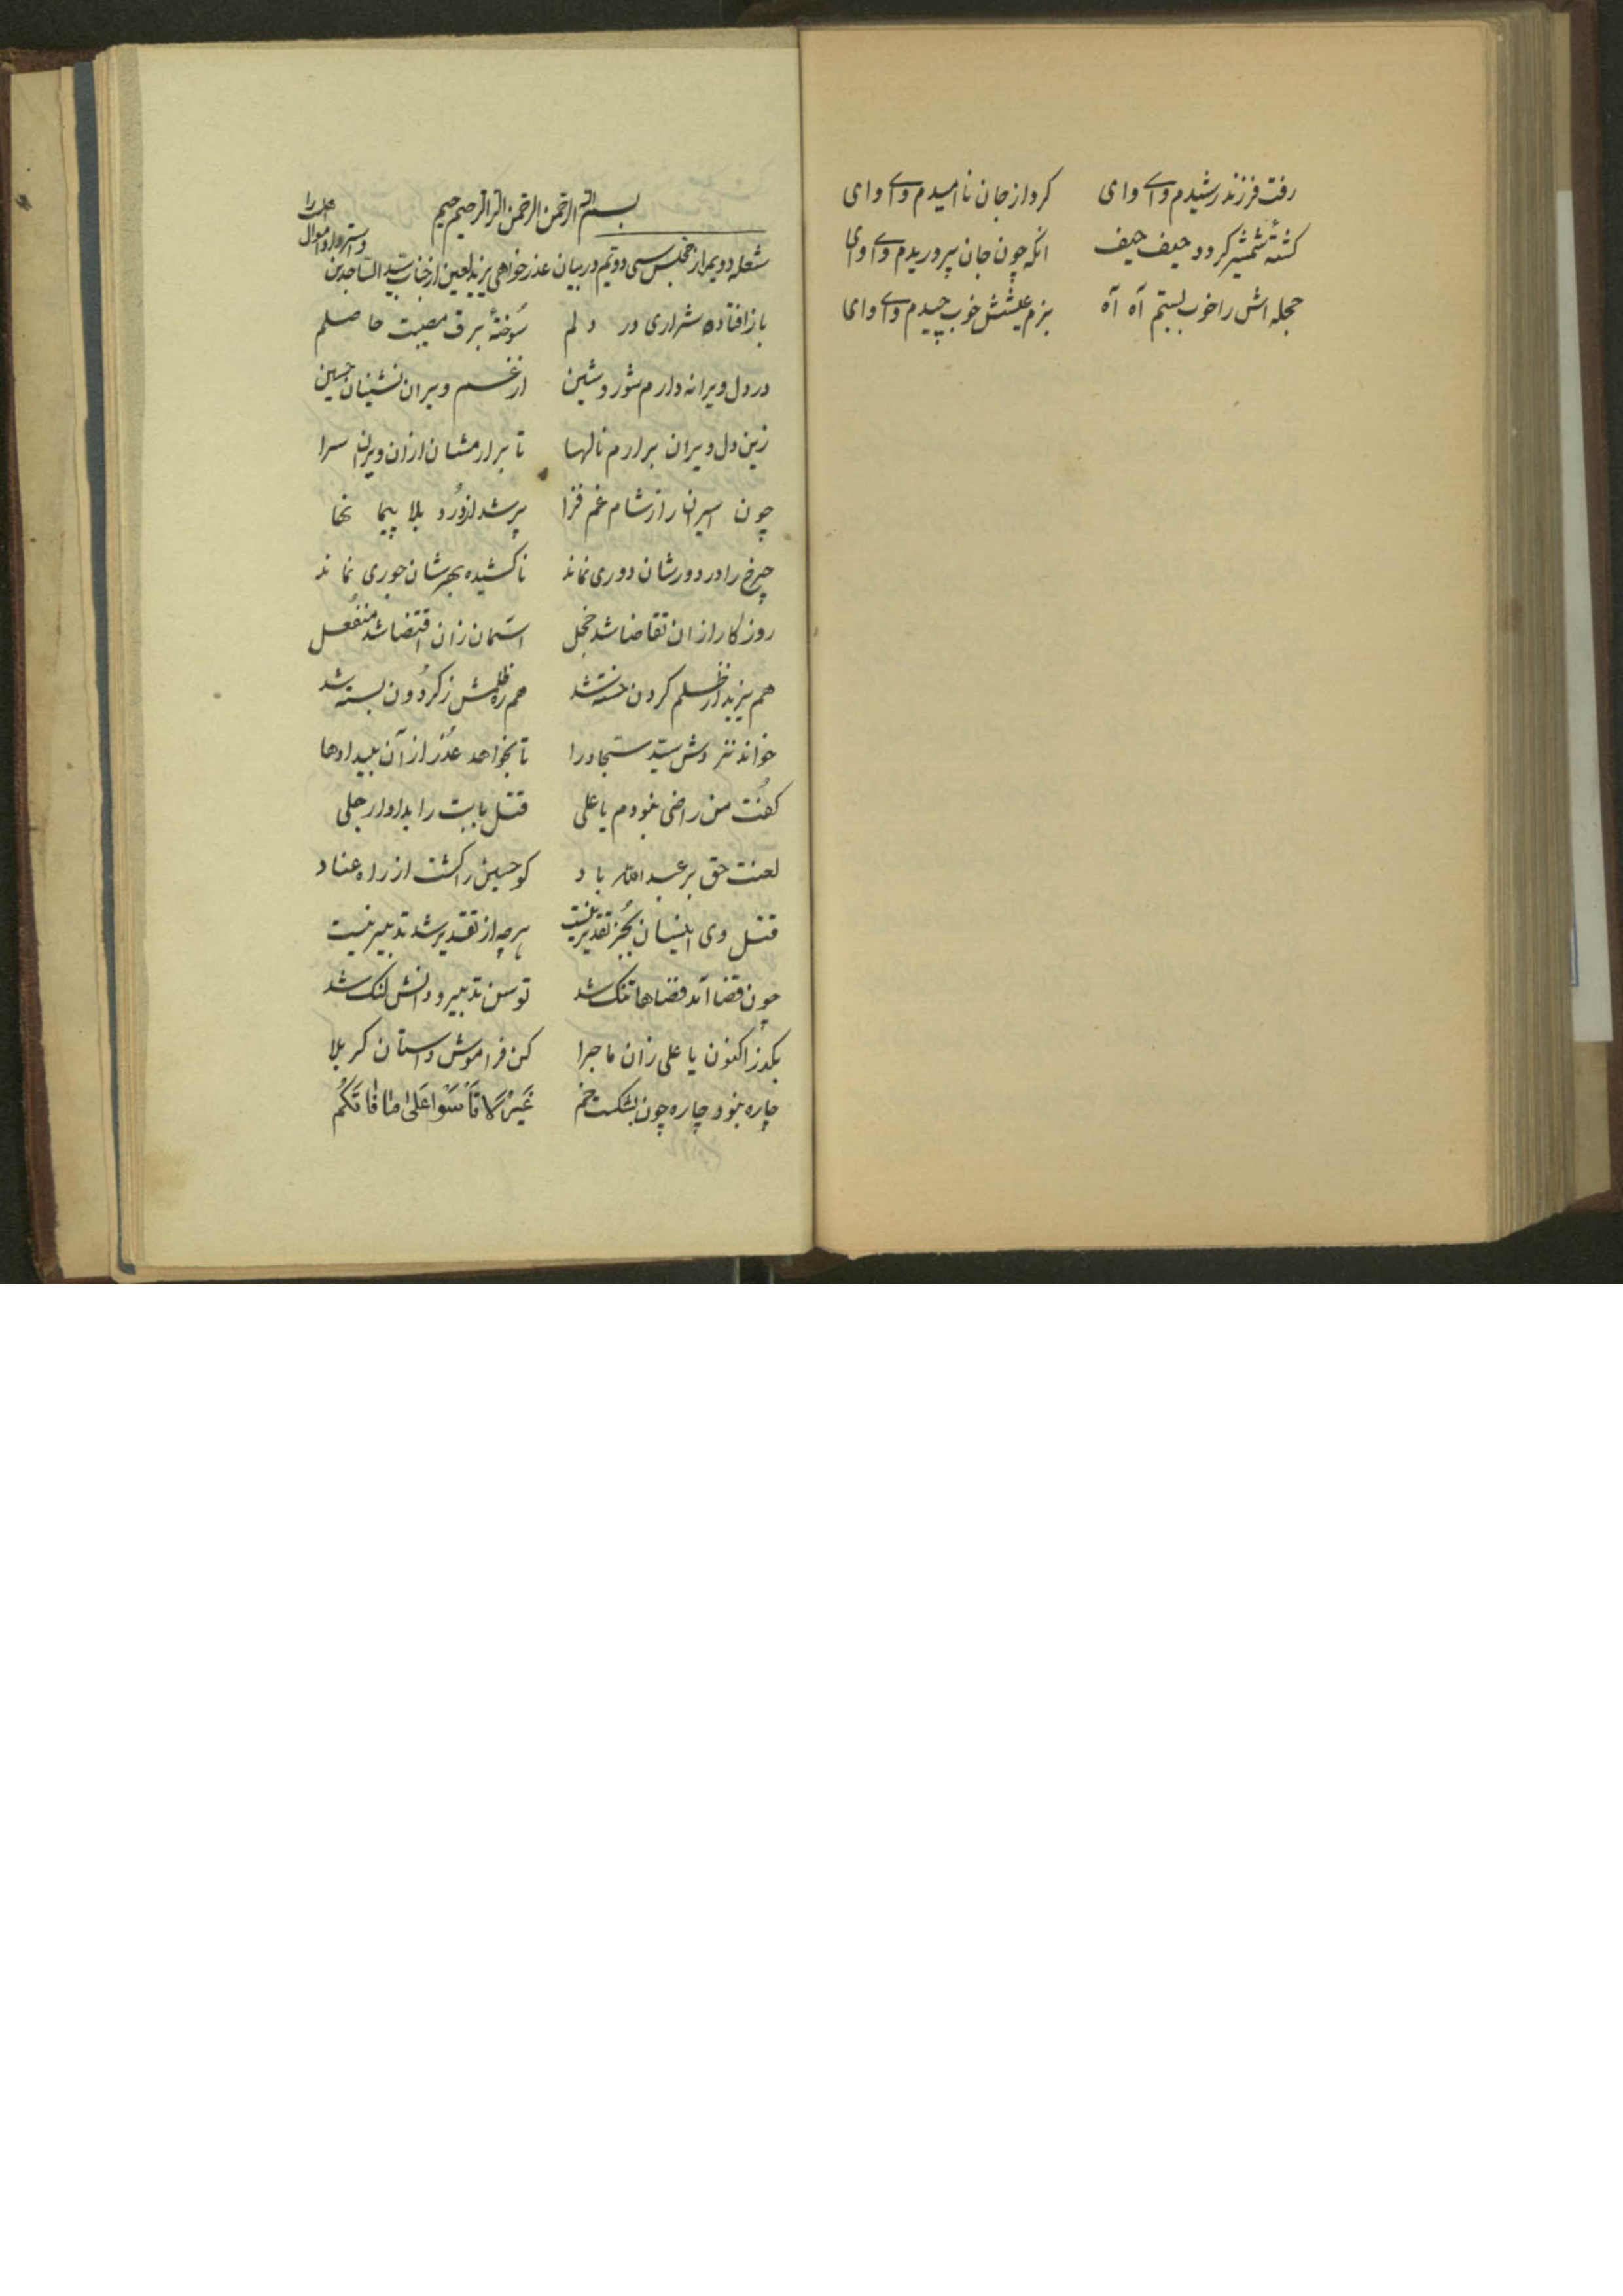 رفت فرزند رشیدم وای وای کرد از جان ناامیدم وای وای
کشتهٔ شمشیر کردد حیف حیف انکه چون جان پروریدم وای وای
حجله اش را خوب بستم آه آه بزم عیشش خوب چیدم وای وای
بسم الله الرحمن الرحیم
شعله دویم از مجلس سی دویم در بیان عذر خواهی یزید لعین از جناب سید الساجدین
و استرداد اموال
باز افتاده شراری در دلم سوختهٔ برق مصیبت حاصلم
در دل ویرانه دارم شور و شین از غم ویران نشینان حسین
زین دل ویران برارم نالها تا برارمشان ازان ویران سرا
چون اسیران را ز شام غم فزا پر شد از دور بلا پیمانها
چرخ را در دورشان دوری نماند ناکشیده بهرشان جوری نماند
روزکار ازان تقاضا شد خجل اسمان زان اقتضا شد منفعل
هم یزید از ظلم کردن خسته شد هم ره ظلمش ز کردون بسته شد
خواند نزدش سید سجاد را تا بخواهد عذر از آن بیدادها
کفت من راضی نبودم یا علی قتل بابت را بداوار جلی
لعنت حق بر عبید الله باد کو حسین را کشت از راه عناد
قتل وی اینسان بجز تقدیر نیست هرچه از تقدیر شد تدبیر نیست
چون قضا آمد فضاها تنک شد توسن تدبیر و دانش لنک شد
بکذر اکنون یا علی زان ماجرا کن فراموش داستان کربلا
چاره نبود چاره چون بشکست خم غیر لا تأسوا علی ما فاتکم